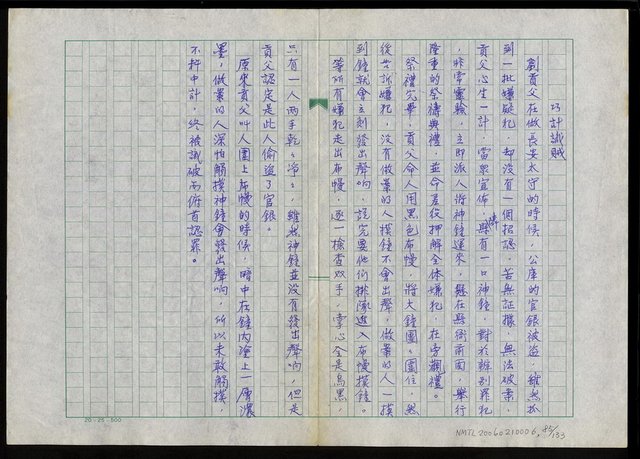 巧計識賊
賈貢父在做長安太守的時候，公庫的官銀被盜，雖然抓
到一批嫌疑犯，却沒有一個招認，苦無証據，無法破案，
貢父心生一計，當眾宣佈，鄰縣有一口神鐘，對於辨別罪犯
，非常靈驗，立即派人將神鐘運來，懸在縣衙前面，舉行
隆重的祭禱典禮，並命差役押解全体嫌犯，在旁觀禮。
祭禮完畢，貢父命人用黑色布幔，將大鐘團團圍住，然
後告訴嫌犯，沒有做案的人摸鐘不會出聲，做案的人一摸
到鐘就會立刻發出聲响，說完要他們排隊進入布幔摸鐘。
等所有嫌犯走出布幔，逐一檢查双手，掌心全是烏黑，
只有一人兩手乾乾淨淨，雖然神鐘並沒有發出聲响，但是
貢父認定是此人偷盜了官銀。
原來貢父叫人圍上布幔的時候，暗中在鐘內塗上一層濃
墨，做案的人深怕觸摸神鐘會發出聲响，所以未敢觸摸，
不料中計，終被識破而俯首認罪。
20-25-500
NMTL20060210006, 133